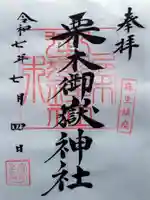 奉拝
栗木御嶽神社
令和七年七月四日